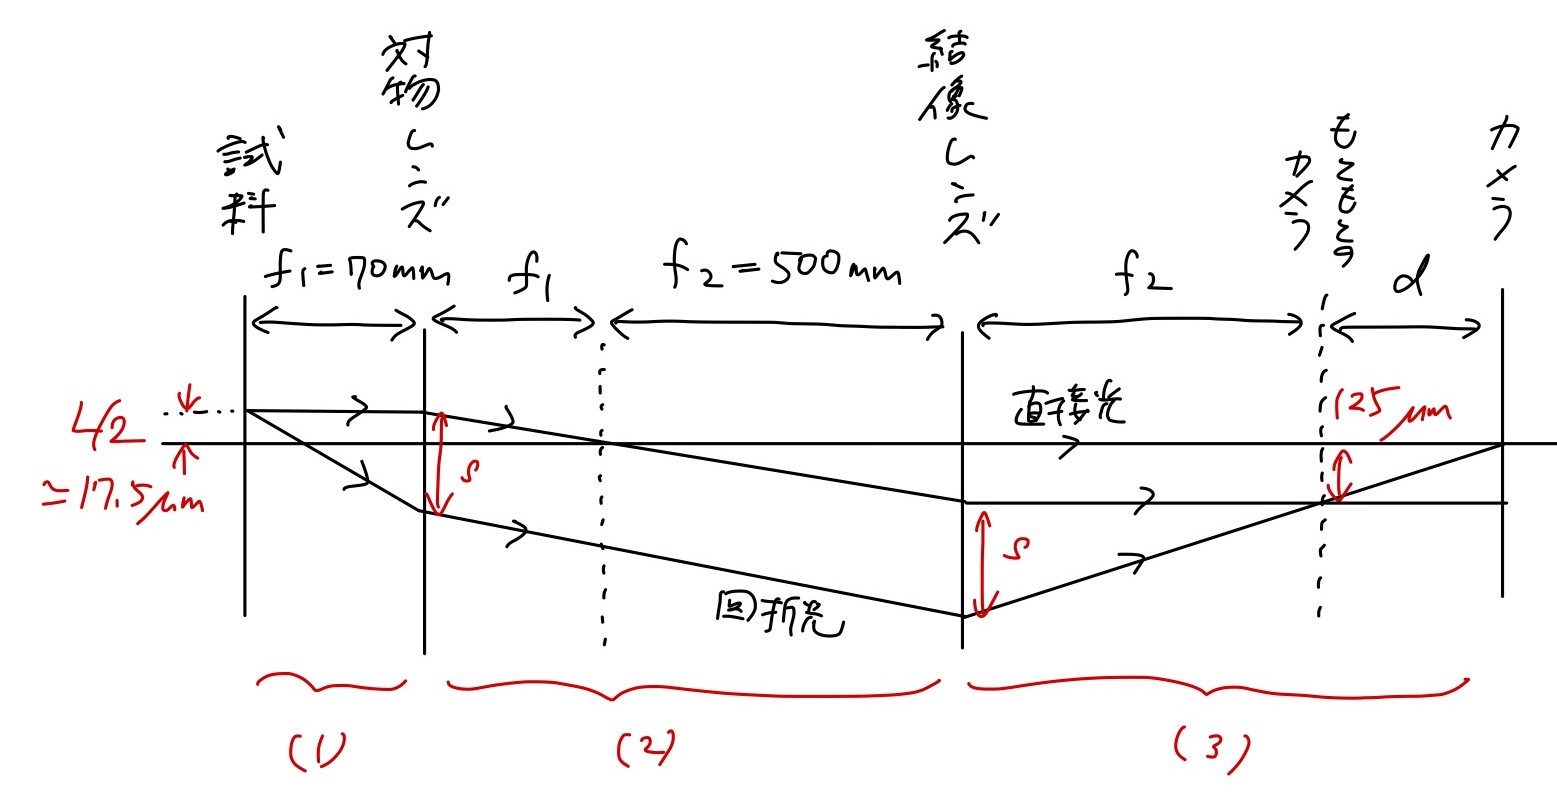 試料
対物レンズ
結像レンズ
もともとの
カメラ
カメラ
f₁=70mm
f₁
f₂=500mm
f₂
d
L/2
≃17.5μm
s
直接光
125μm
s
回折光
(1)
(2)
(3)